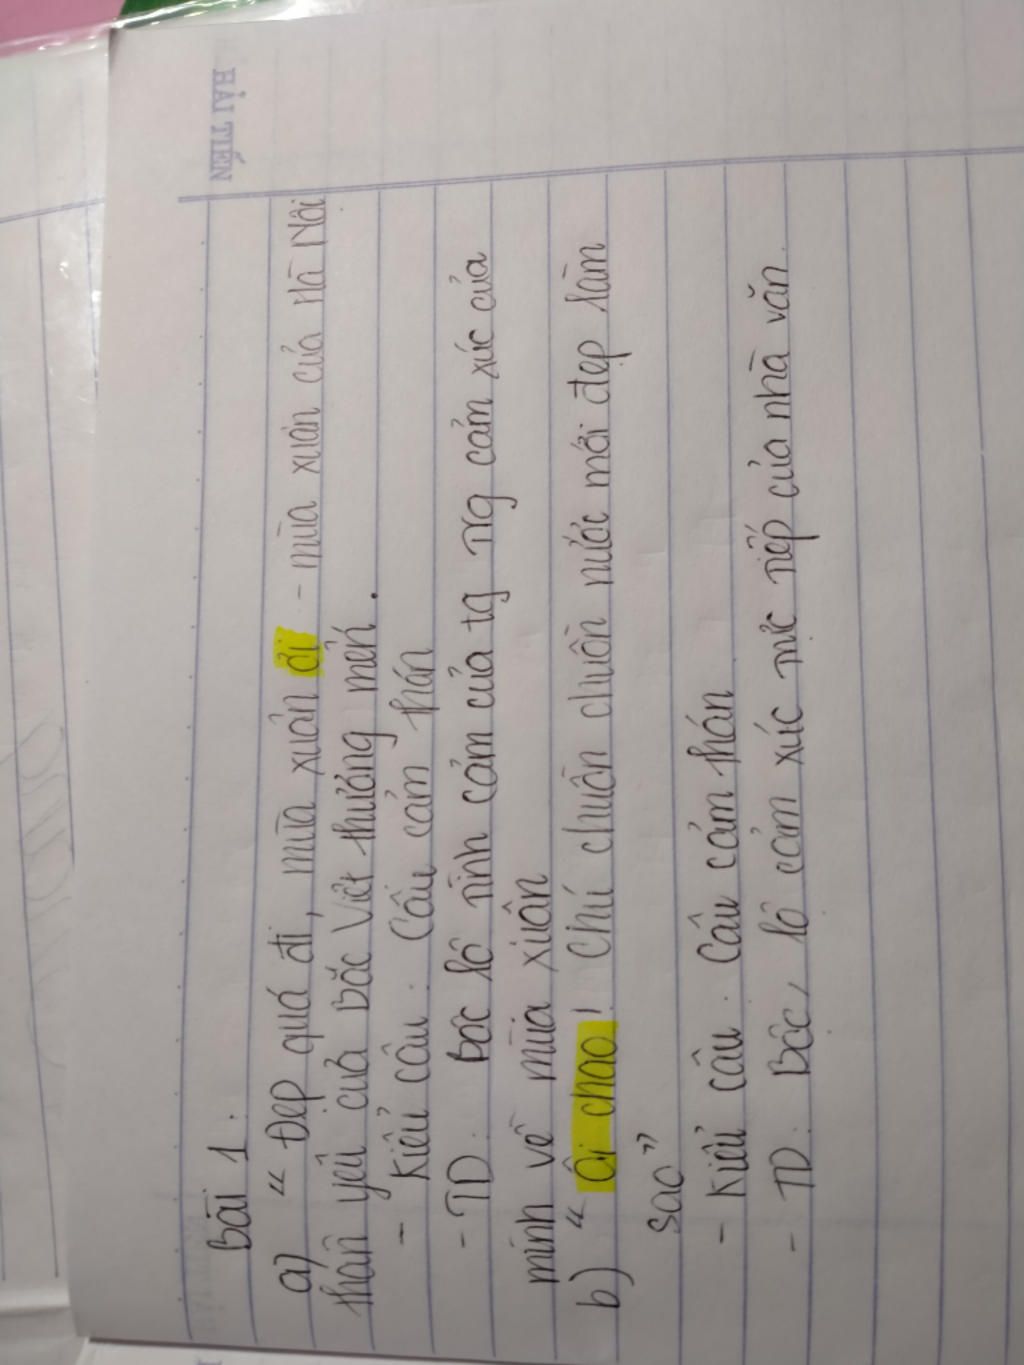 HẢI TIẾN
Bài 1.
a) " Đẹp quá đi, mùa xuân ơi - mùa xuân của Hà Nội
thân yêu của Bắc Việt thương mến.
- Kiểu câu. Câu cảm thán
- TD. Bộc lộ tình cảm của tg trg cảm xúc của
mình về mùa xuân
b) " Ôi chao! Chú chuồn chuồn nước mới đẹp làm
sao"
- Kiểu câu. Câu cảm thán
- TD. Bộc lộ cảm xúc trực tiếp của nhà văn.